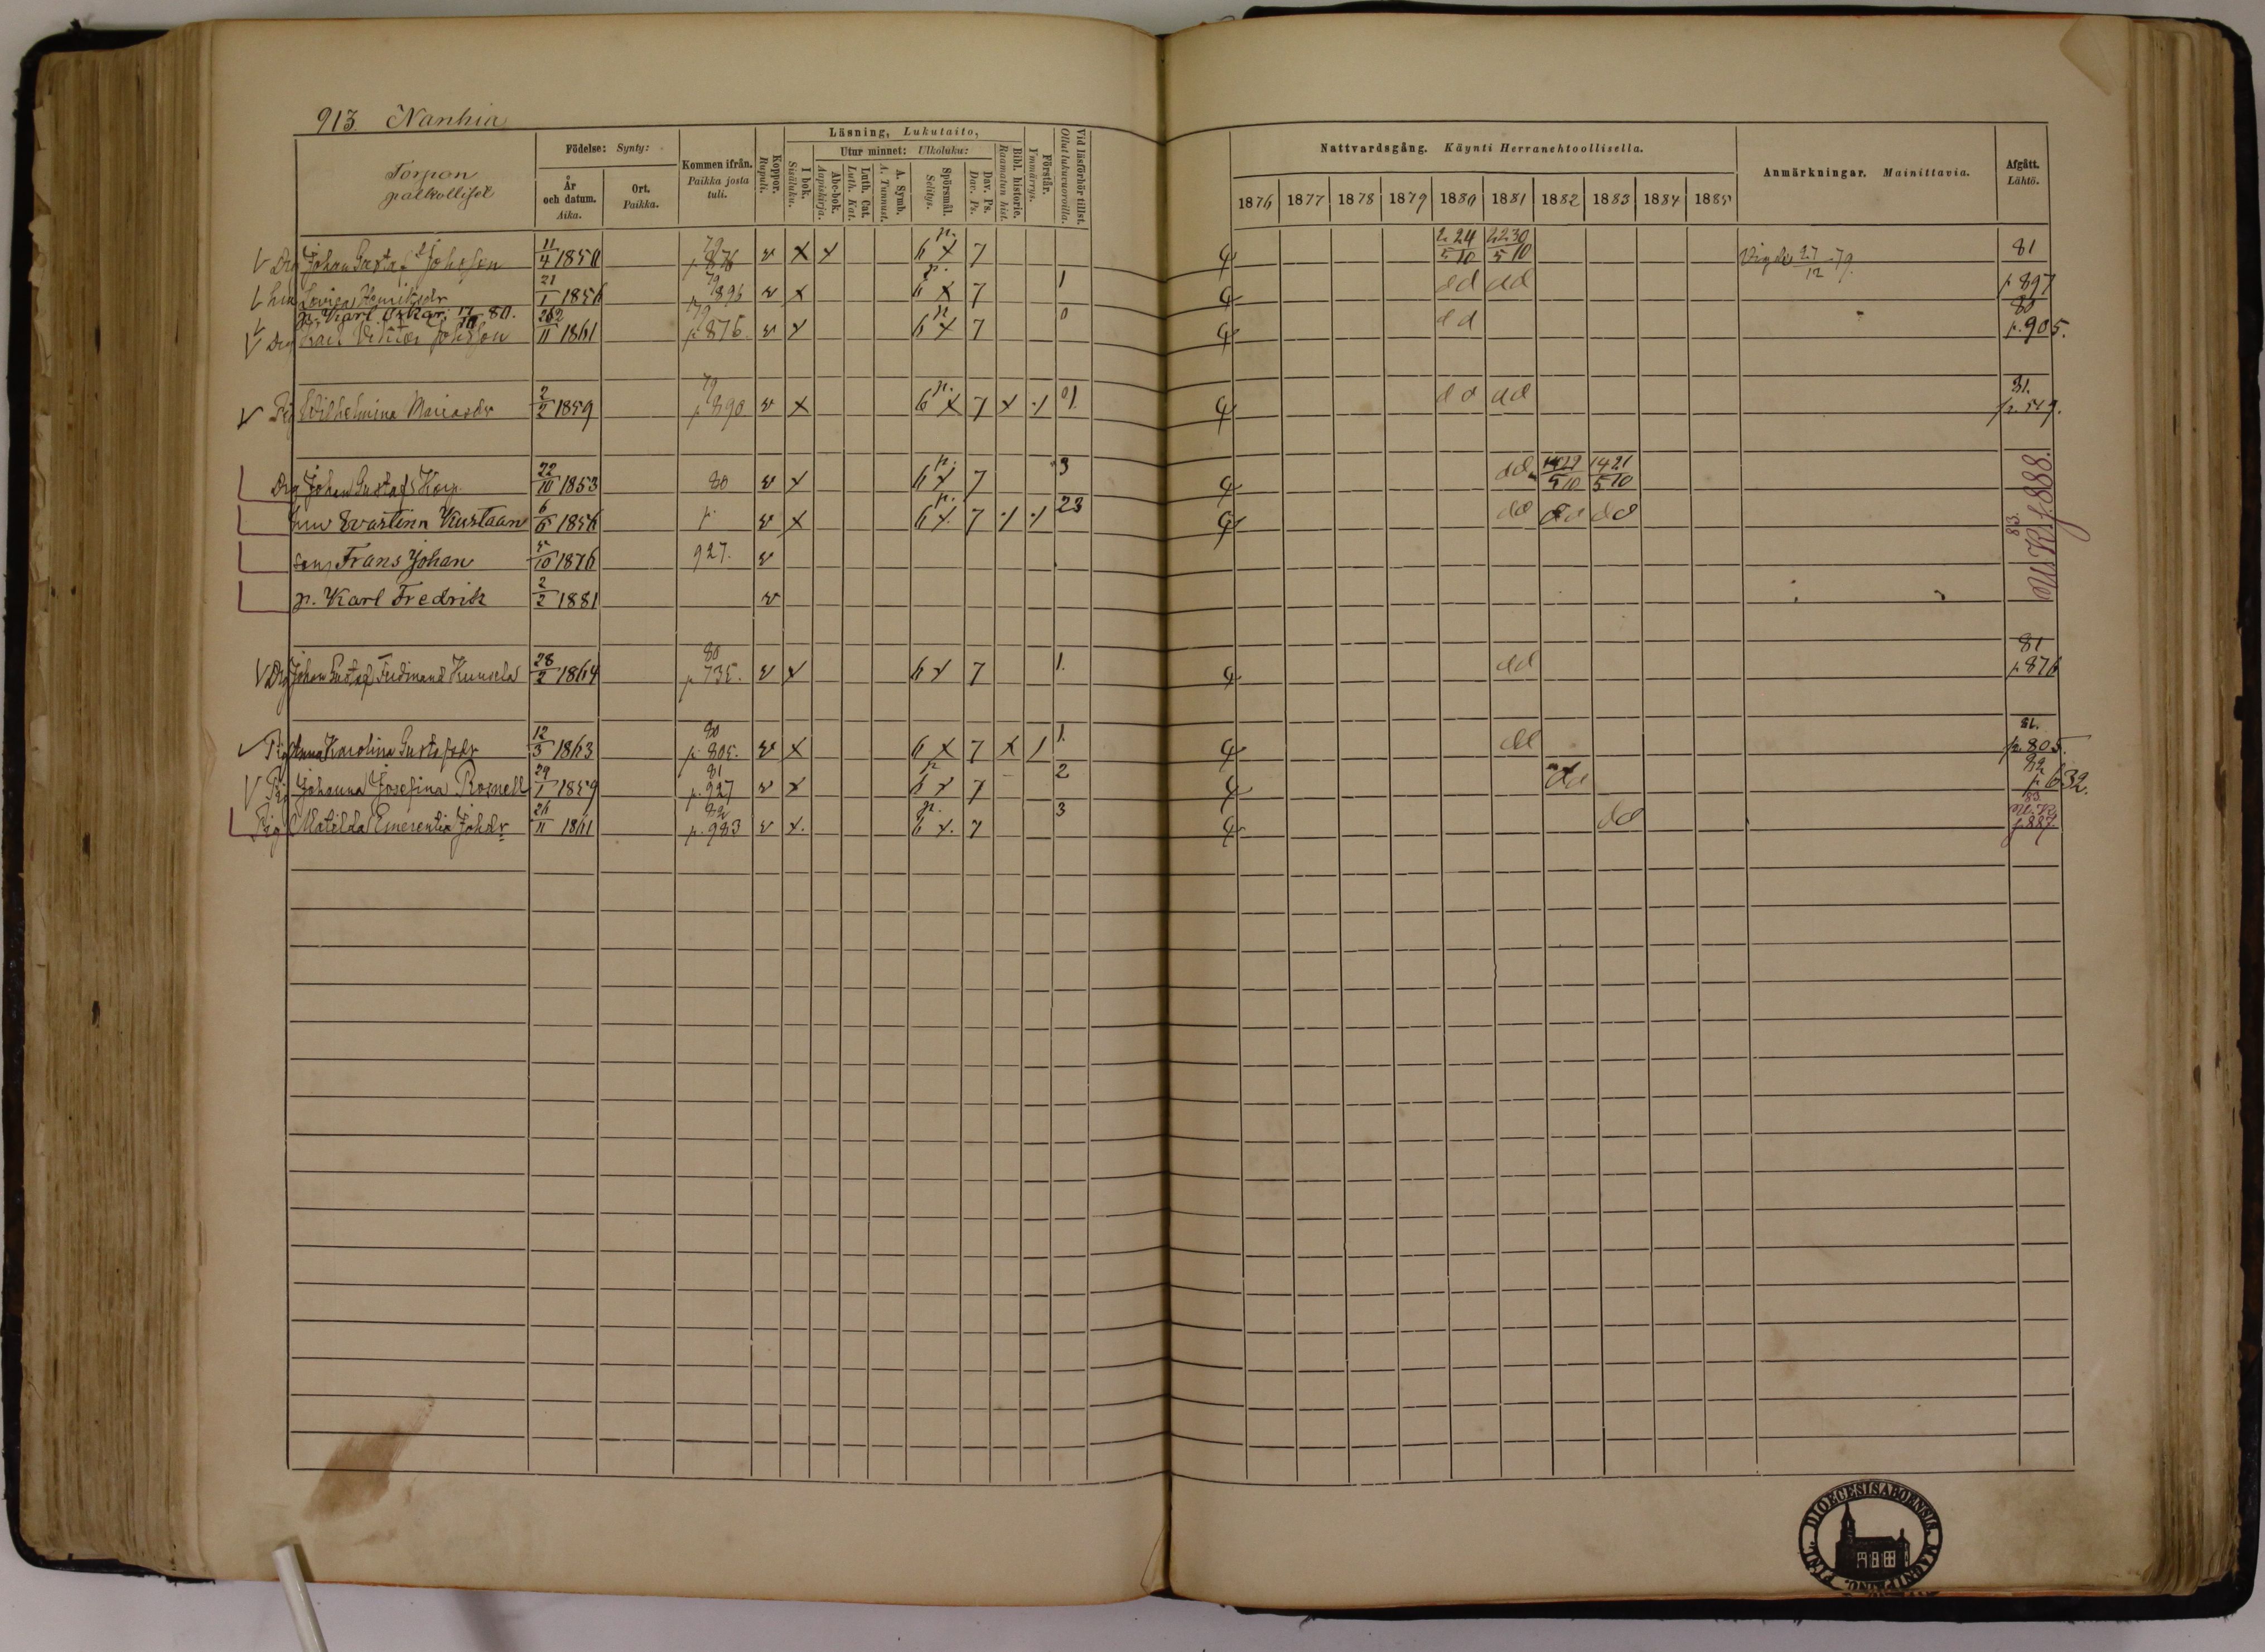 913. Nanhia
Torpon
palkolliset
Födelse: Synty:
År
och datum.
Aika.
Ort.
Paikka.
Kommen ifrån.
Paikka josta
tuli.
Koppor.
Rupuli.
Läsning, Lukutaito,
I bok.
Sisäluku.
Utur minnet: Ulkoluku:
Abc-bok.
Aapiskirja.
Luth. Cat.
Luth. Kat.
A. Symb.
A. Tunnust.
Spörsmål.
Selitys.
Dav. Ps.
Dav. Ps.
Bibl. historie.
Raamatun hist.
Förstår.
Ymmärrys.
Vid läsförhör tillst.
Ollut lukuvuoroilla.
Nattvardsgång. Käynti Herranehtoollisella.
1876 1877 1878 1879 1880 1881 1882 1883 1884 1885
Anmärkningar. Mainittavia.
Afgått.
Lähtö.
Drg Johan Gustaf Johsson 11/4 1850 79 p 876 v x x 6 x 7 2 24 5 10 2 230 5 10 Vigde 27/12 79. 81
hu Lovisa Henriksdr 21/1 1856 79 p 896 v x 6 x 7 1 dd dd p 897
p. Karl Oskar 80.
Drg Karl Viktor Johsson 11 1861 79 p 876. v x 6 x 7 0 dd 80 p. 905.
Pig Wilhelmina Mariasdr 2/2 1859 79 p 890 v x 6 x 7 x 1 dd dd 81. p. 519.
Drg Johan Gustafs Korp 22/10 1853 80 v x 6 x 7 3 dd 14 21 5 10
hu Evastina Kustaan 6/6 1856 p. v x 6 x 7 23 dd dd dd
son Frans Johan 10 1876 927. v
p. Karl Fredrik 2/2 1881 v
83. U.K. p. 888.
Drg Johan Gustaf Ferdinand Kunsela 28/2 1864 80 p 735. v x 6 x 7 1. dd 81 p 876
Pig Anna Karolina Gustafsdr 12/3 1863 80 p. 805. v x 6 x 7 x 1 1. dd 81. p. 805.
Pig Johanna Josefina Rosnell 29/1 1859 81 p. 927 v x 6 x 7 2 dd 82 p 632.
Pig Matilda Emerentia Johdr 26/11 1861 82 p. 983 v x. 6 x. 7 3 dd 83. U.K. p. 887.
DIOECESIS ABOENSIS